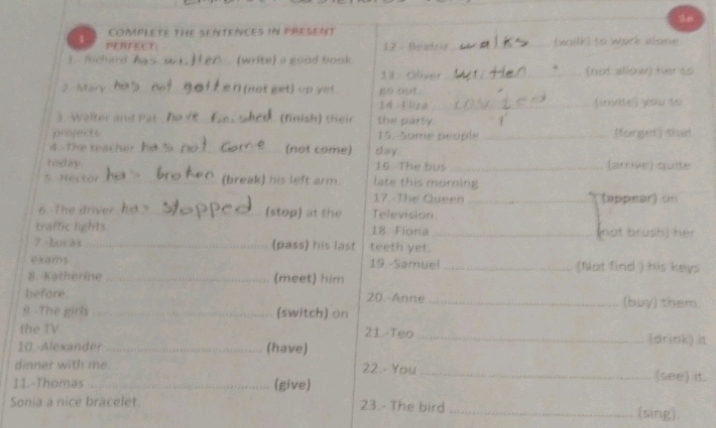 COMPLETE THE SENTENCES IN PRESENT
PERFECT:
1. Richard has written (write) a good book
2. Mary has not gotten (not get) up yet.
3. Walter and Pat have finished (finish) their
projects
4.-The teacher has not come (not come)
today
5. Hector has broken (break) his left arm.
6. The driver has stopped (stop) at the
traffic lights
7.-Lucas (pass) his last
exams
8. Katherine (meet) him
before
9.-The girls (switch) on
the TV.
10.-Alexander (have)
dinner with me.
11.-Thomas (give)
Sonia a nice bracelet.
12.- Beatriz walks (walk) to work alone
13. Oliver written (not allow) her to
go out.
14.-Eliza (invite) you to
the party
15.-Some people (forget) that
day
16. The bus (arrive) quite
late this morning
17.-The Queen (appear) on
Television.
18.-Fiona (not brush) her
teeth yet.
19.-Samuel (Not find ) his keys
20.-Anne (buy) them.
21.-Teo (drink) it
22.- You (see) it.
23.- The bird (sing).